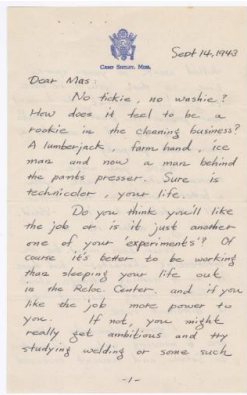 CAMP SHELBY, MISS.
Sept 14, 1943
Dear Mas:
No tickie, no washie?
How does it feel to be a
rookie in the cleaning business?
A lumberjack, farm hand, ice
man and now a man behind
the pants presser. Sure is
technicolor, your life.
Do you think you'll like
the job or is it just another
one of your 'experiments'? Of
course it's better to be working
than sleeping your life out
in the Reloc. Center. and if you
like the job more power to
you. If not, you might
really get ambitious and try
studying welding or some such
-1-